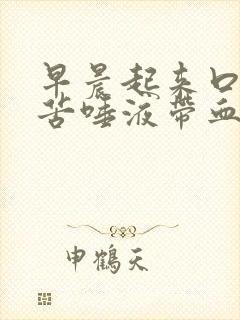 早晨起来口
苦唾液带血
申鹤天